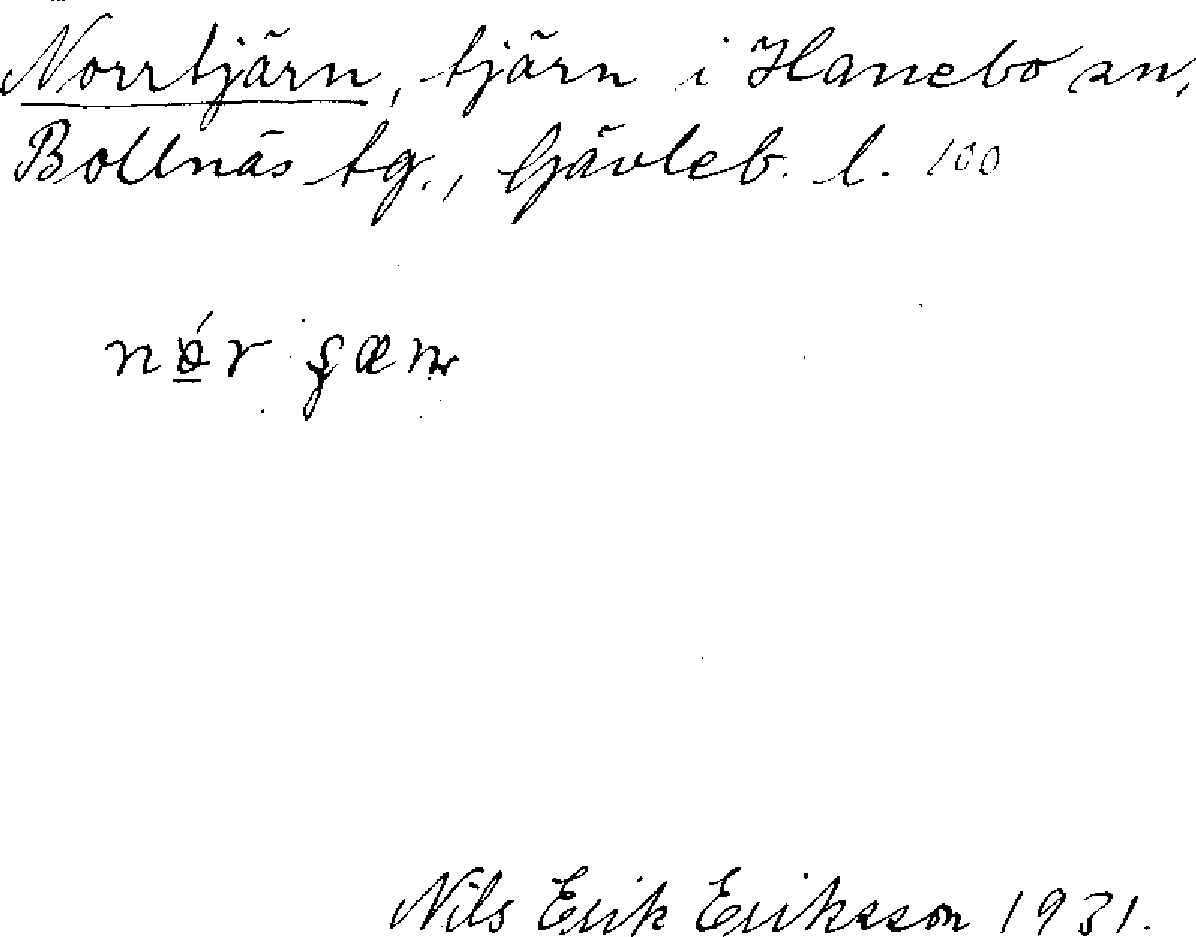 Norrtjärn, tjärn i Hanebo sn,
Bollnäs tg., Gävleb. l. 100
Nils Erik Eriksson 1931.